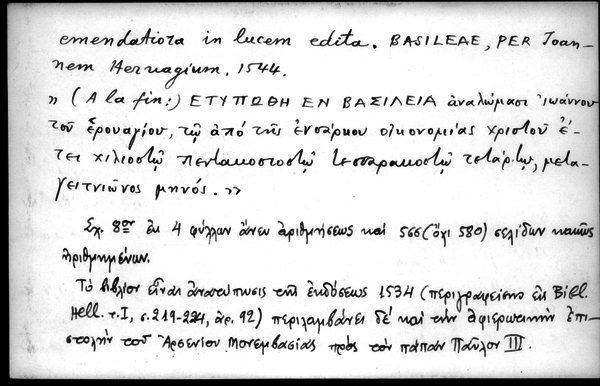 emendatiora in lucem edita. BASILEAE, PER Joan-
nem Hervagium. 1544.
» (A la fin:) ΕΤΥΠΩΘΗ ΕΝ ΒΑΣΙΛΕΙΑ ἀναλώμασι Ἰωάννου
τοῦ ἑρουαγίου, τῷ ἀπό τῆς ἐνσάρκου οἰκονομίας χριστοῦ ἔ-
τει χιλιοστῷ πεντακοσιοστῷ τεσσαρακοστῷ τετάρτῳ, μετα-
γειτνιῶνος μηνός. »
Σχ. 8ον ἐκ 4 φύλλων ἄνευ ἀριθμήσεως καί 566 (ὄχι 580) σελίδων κακῶς
ἠριθμημένων.
Τό βιβλίον εἶναι ἀνατύπωσις τῆς ἐκδόσεως 1534 (περιγραφείσης ἐν Bibl.
Hell. τ. I, σ. 219-224, ἀρ. 92) περιλαμβάνει δέ καί τήν ἀφιερωτικήν ἐπι-
στολήν τοῦ Ἀρσενίου Μονεμβασίας πρὸς τόν πάπαν Παῦλον III.